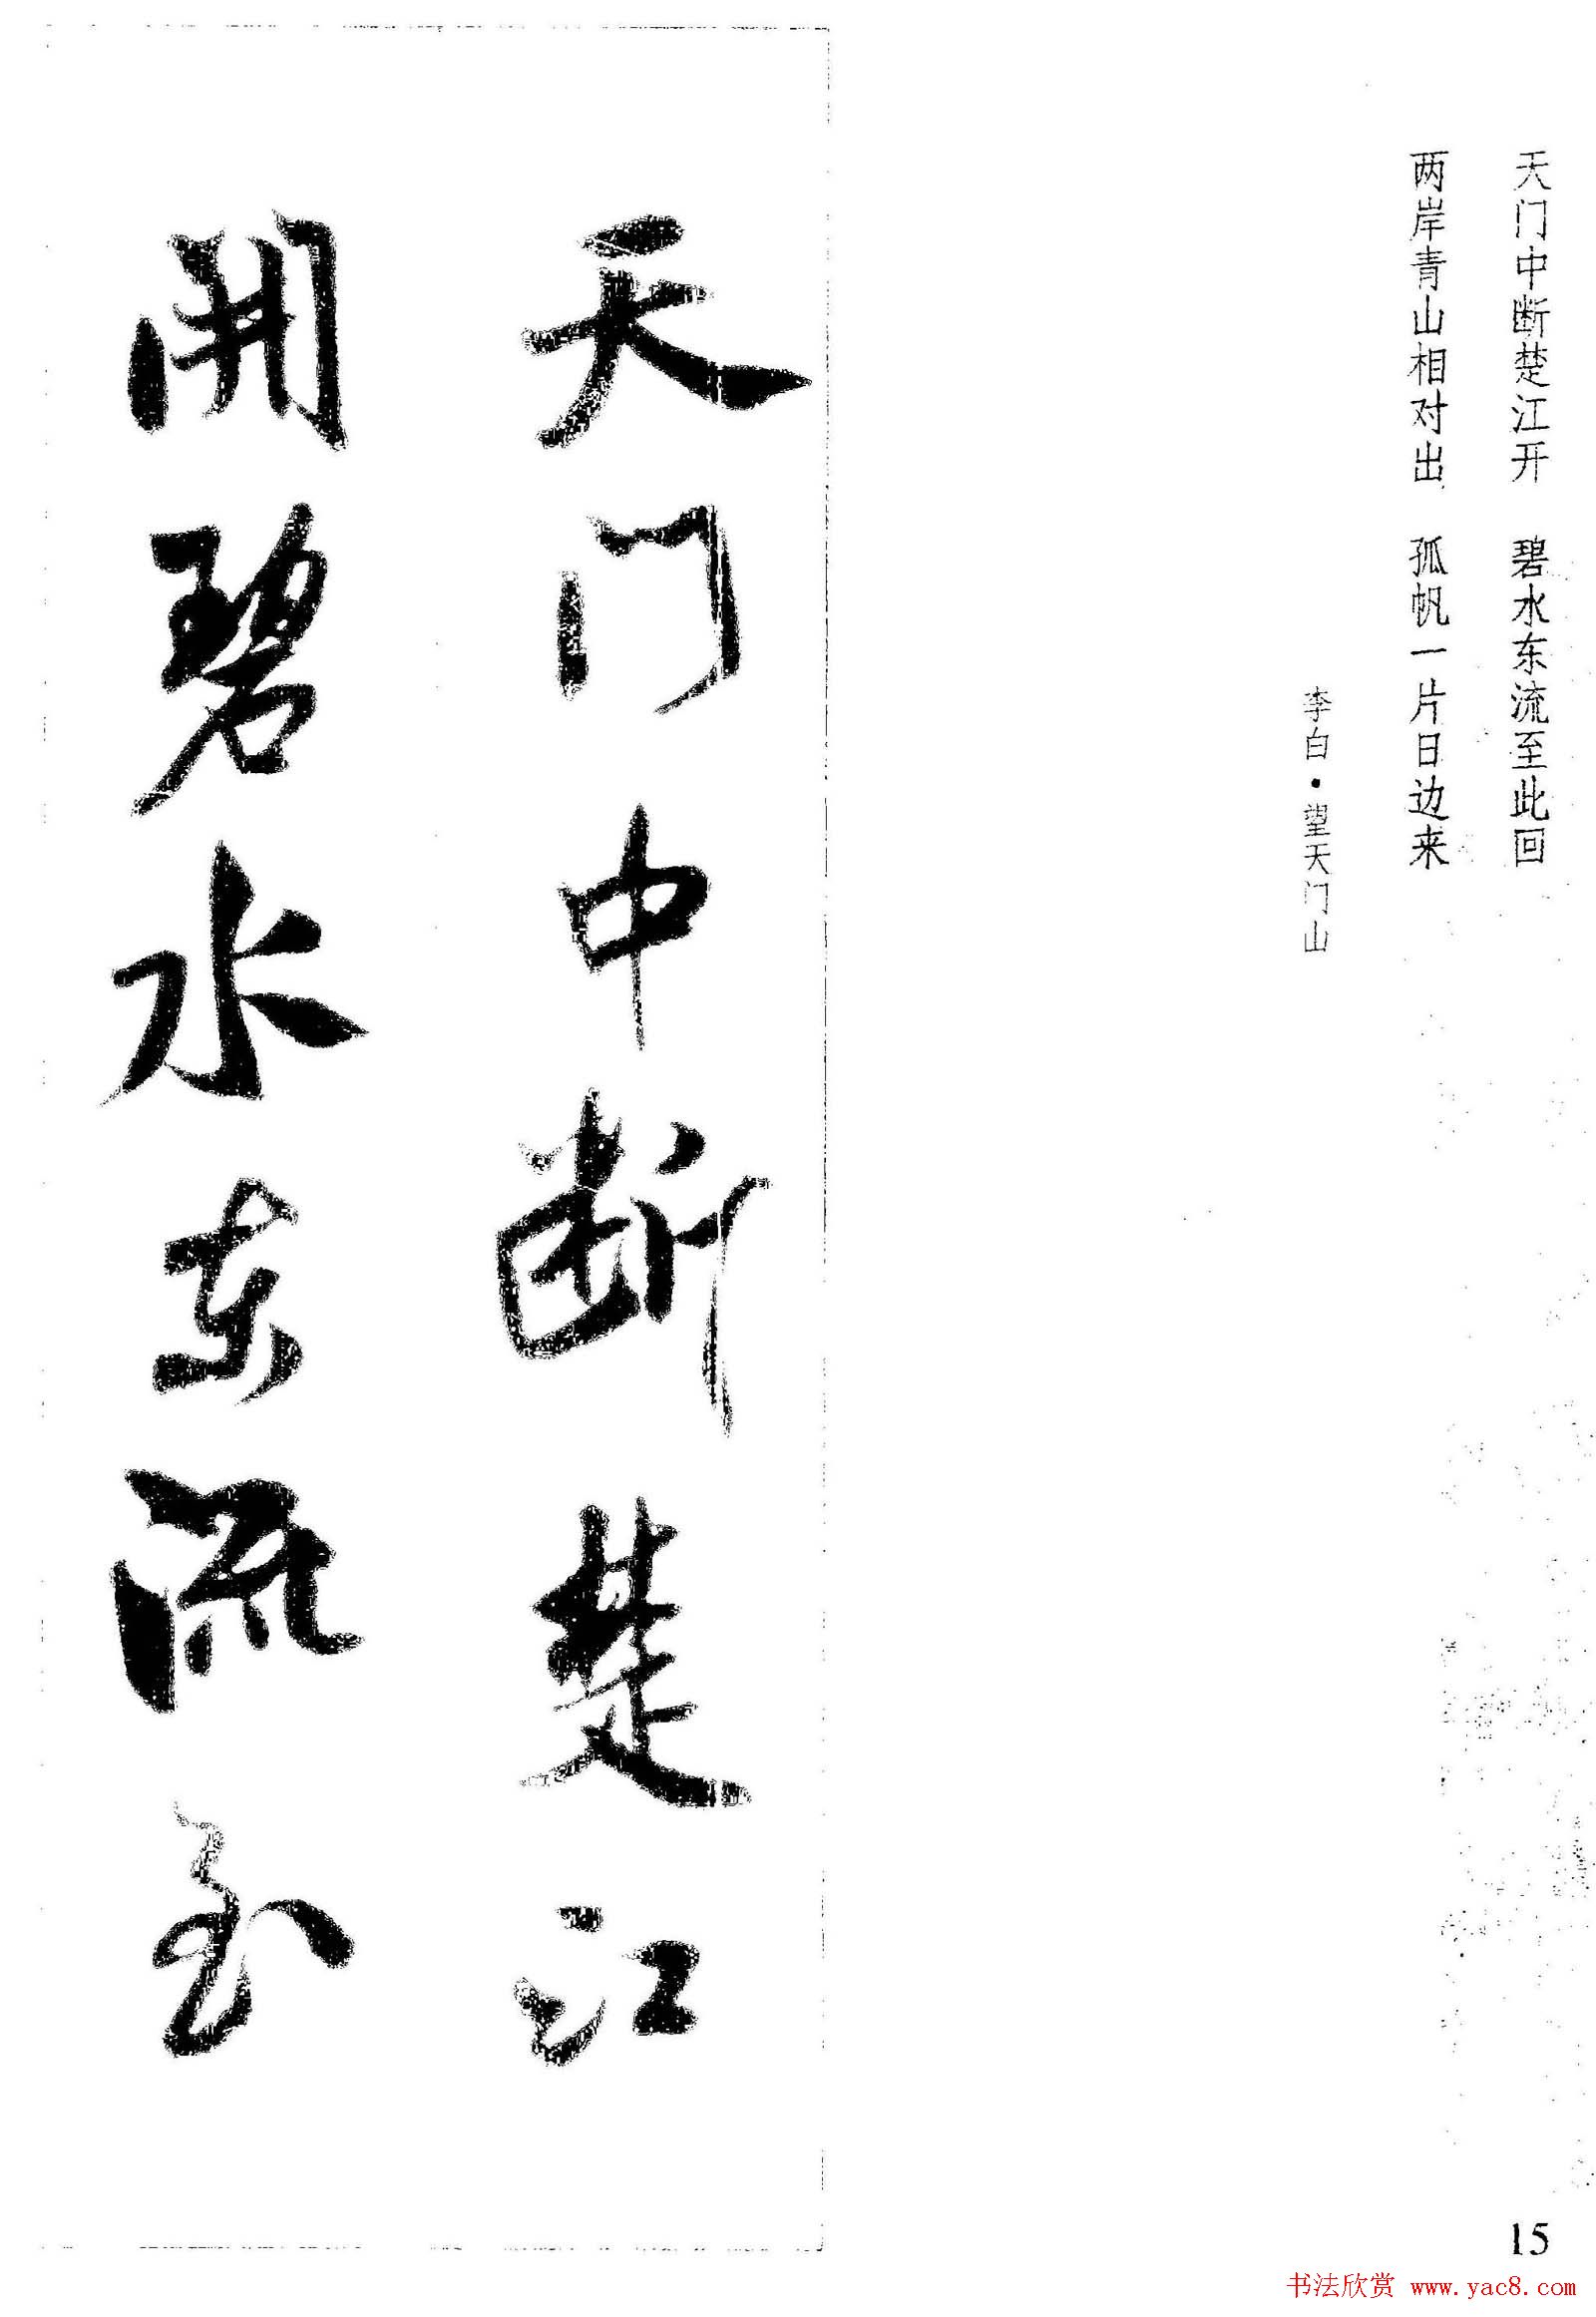 天门中断楚江开 碧水东流至此回
两岸青山相对出 孤帆一片日边来
李白·望天门山
天门中断楚江
開碧水东流至
15
书法欣赏 www.yac8.com